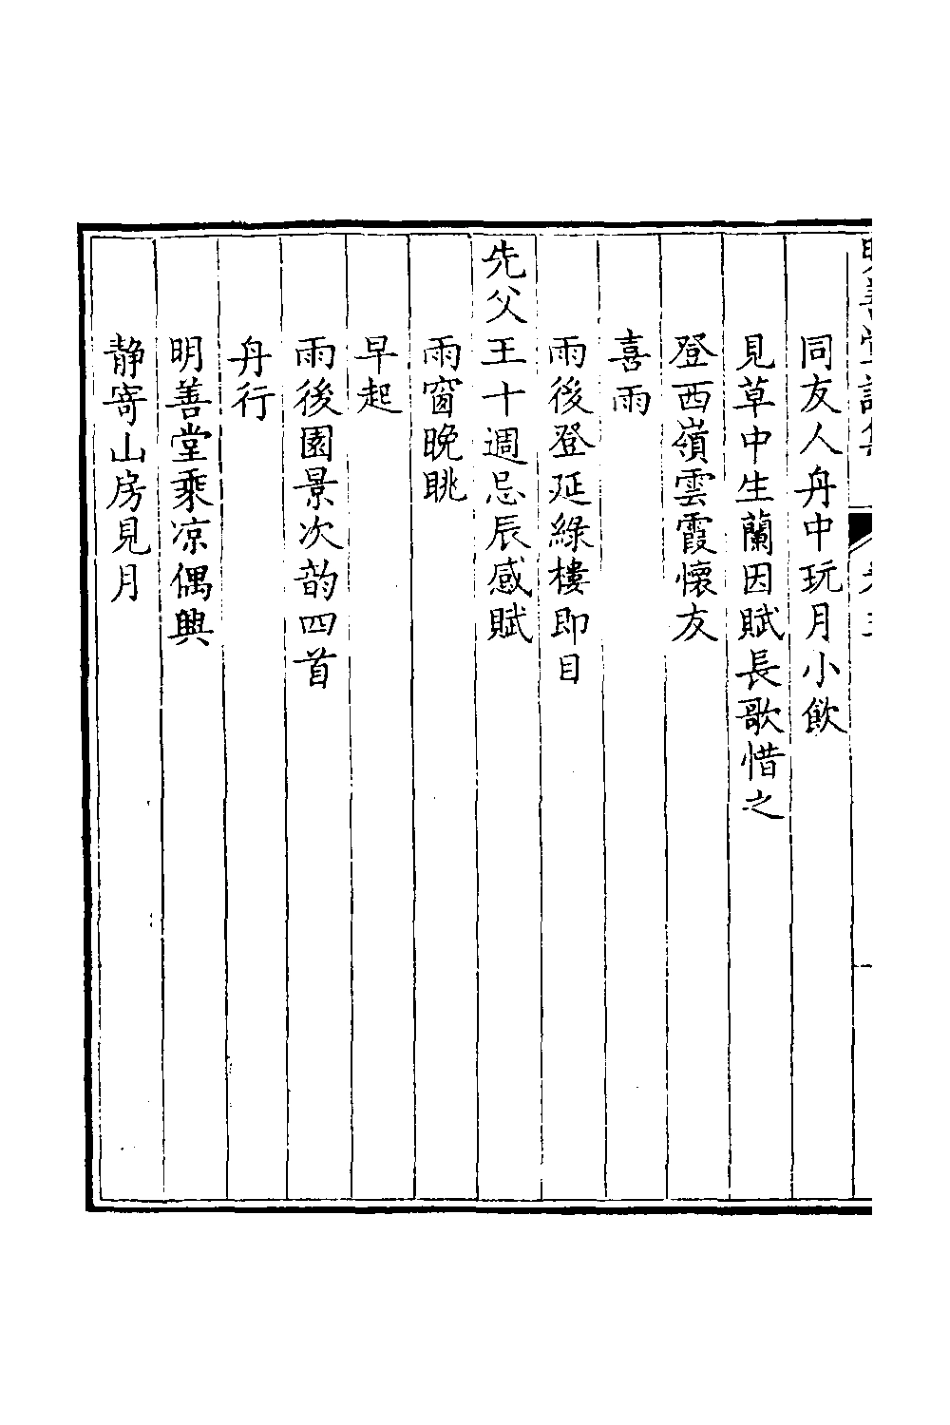 同友人舟中玩月小飲
見草中生蘭因賦長歌惜之
登西嶺雲霞懷友
喜雨
雨後登延綠樓即目
先父王十週忌辰感賦
雨窗晚眺
早起
雨後園景次韵四首
舟行
明善堂乘凉偶興
静寄山房見月